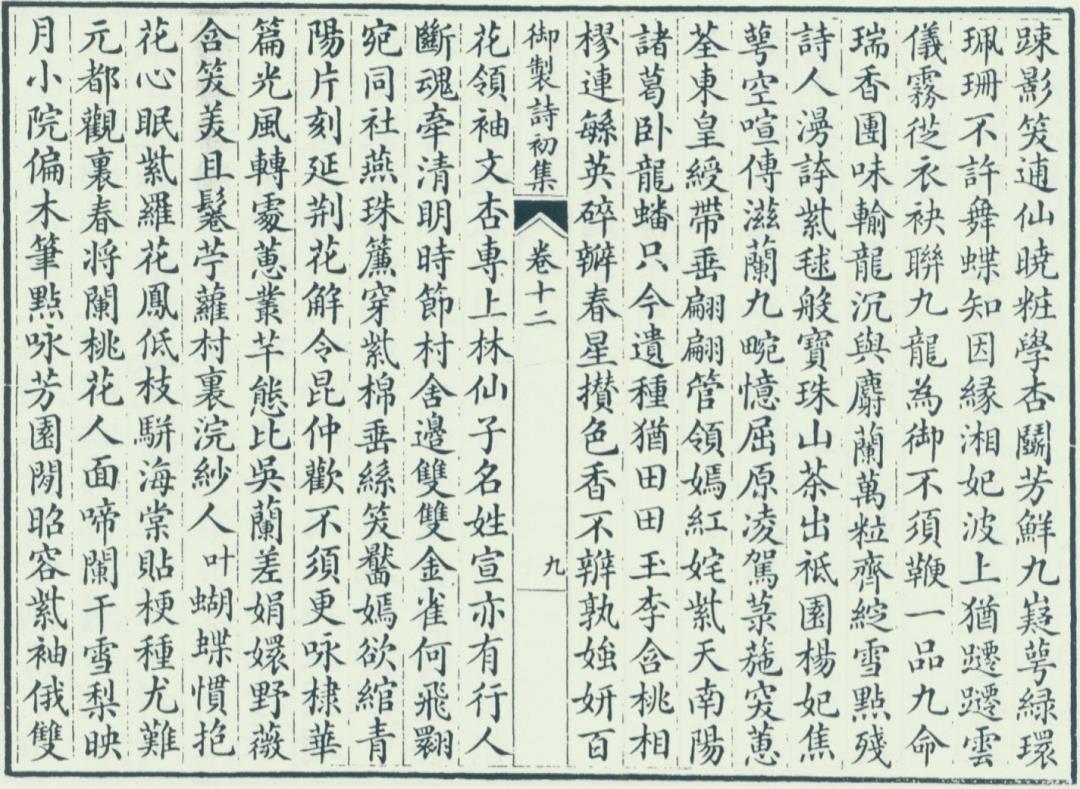 踈影笑逋仙曉粧學杏鬭芳鮮九嶷萼綠環
珮珊不許舞蝶知因緣湘妃波上猶躚躚雲
儀霧從衣袂聯九龍為御不須鞭一品九命
瑞香團味輸龍沉與麝蘭萬粒齊綻雪點殘
詩人漫誇紫毬般寶珠山茶出祇園楊妃焦
萼空喧傳滋蘭九畹憶屈原凌駕菉葹突蕙
荃東皇綬帶垂翩翩管領嫣紅姹紫天南陽
諸葛卧龍蟠只今遺種猶田田玉李含桃相
樛連緐英碎瓣春星攅色香不辨孰媸妍百
御製詩初集 卷十二 九
花領袖文杏專上林仙子名姓宣亦有行人
斷魂牽清明時節村舍邊雙雙金雀何飛翾
宛同社燕珠簾穿紫棉垂絲笑靨嫣欲綰青
陽片刻延荆花解令昆仲歡不須更咏棣華
篇光風轉處蕙叢芊態比吳蘭差娟嬛野薇
含笑美且鬈苧蘿村裏浣紗人叶蝴蝶慣抱
花心眠紫羅花鳳低枝駢海棠貼梗種尤難
元都觀裏春將闌桃花人面啼闌干雪梨映
月小院偏木筆點咏芳園閒昭容紫袖俄雙